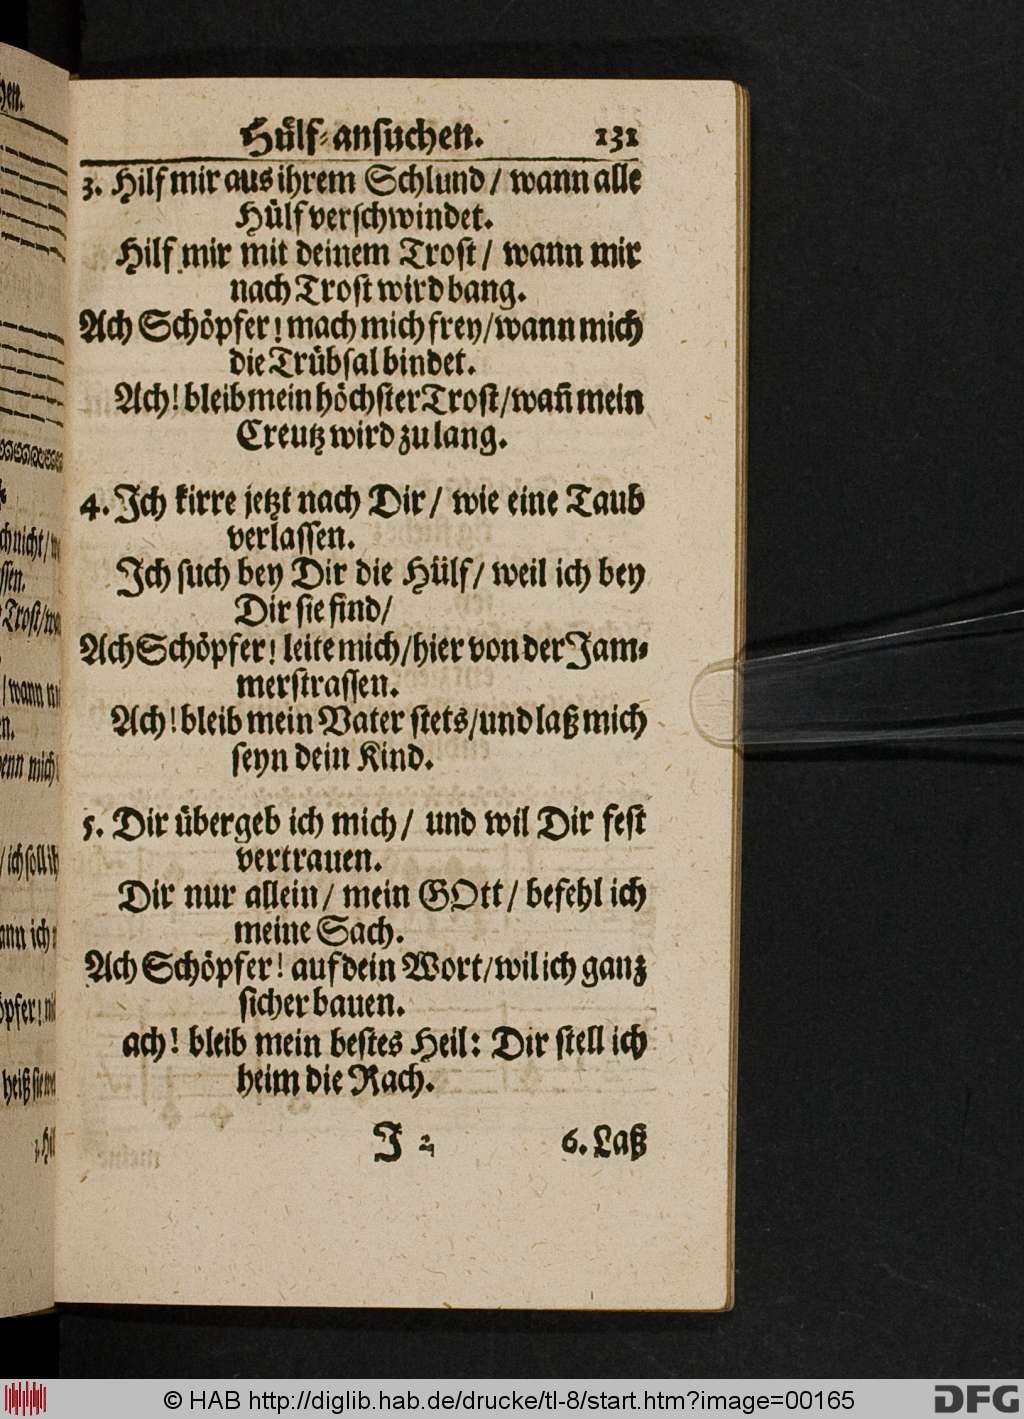 Hülf-ansuchen. 131
3. Hilf mir aus ihrem Schlund / wann alle
Hülf verschwindet.
Hilf mir mit deinem Trost / wann mir
nach Trost wird bang.
Ach Schöpfer! mach mich frey / wann mich
die Trübsal bindet.
Ach! bleib mein höchster Trost / wañ mein
Creutz wird zu lang.
4. Ich kirre jetzt nach Dir / wie eine Taub
verlassen.
Ich such bey Dir die Hülf / weil ich bey
Dir sie find /
Ach Schöpfer! leite mich / hier von der Jam-
merstrassen.
Ach! bleib mein Vater stets / und laß mich
seyn dein Kind.
5. Dir übergeb ich mich / und wil Dir fest
vertrauen.
Dir nur allein / mein GOtt / befehl ich
meine Sach.
Ach Schöpfer! auf dein Wort / wil ich ganz
sicher bauen.
ach! bleib mein bestes Heil: Dir stell ich
heim die Rach.
J 2 6. Laß
© HAB http://diglib.hab.de/drucke/tl-8/start.htm?image=00165
DFG